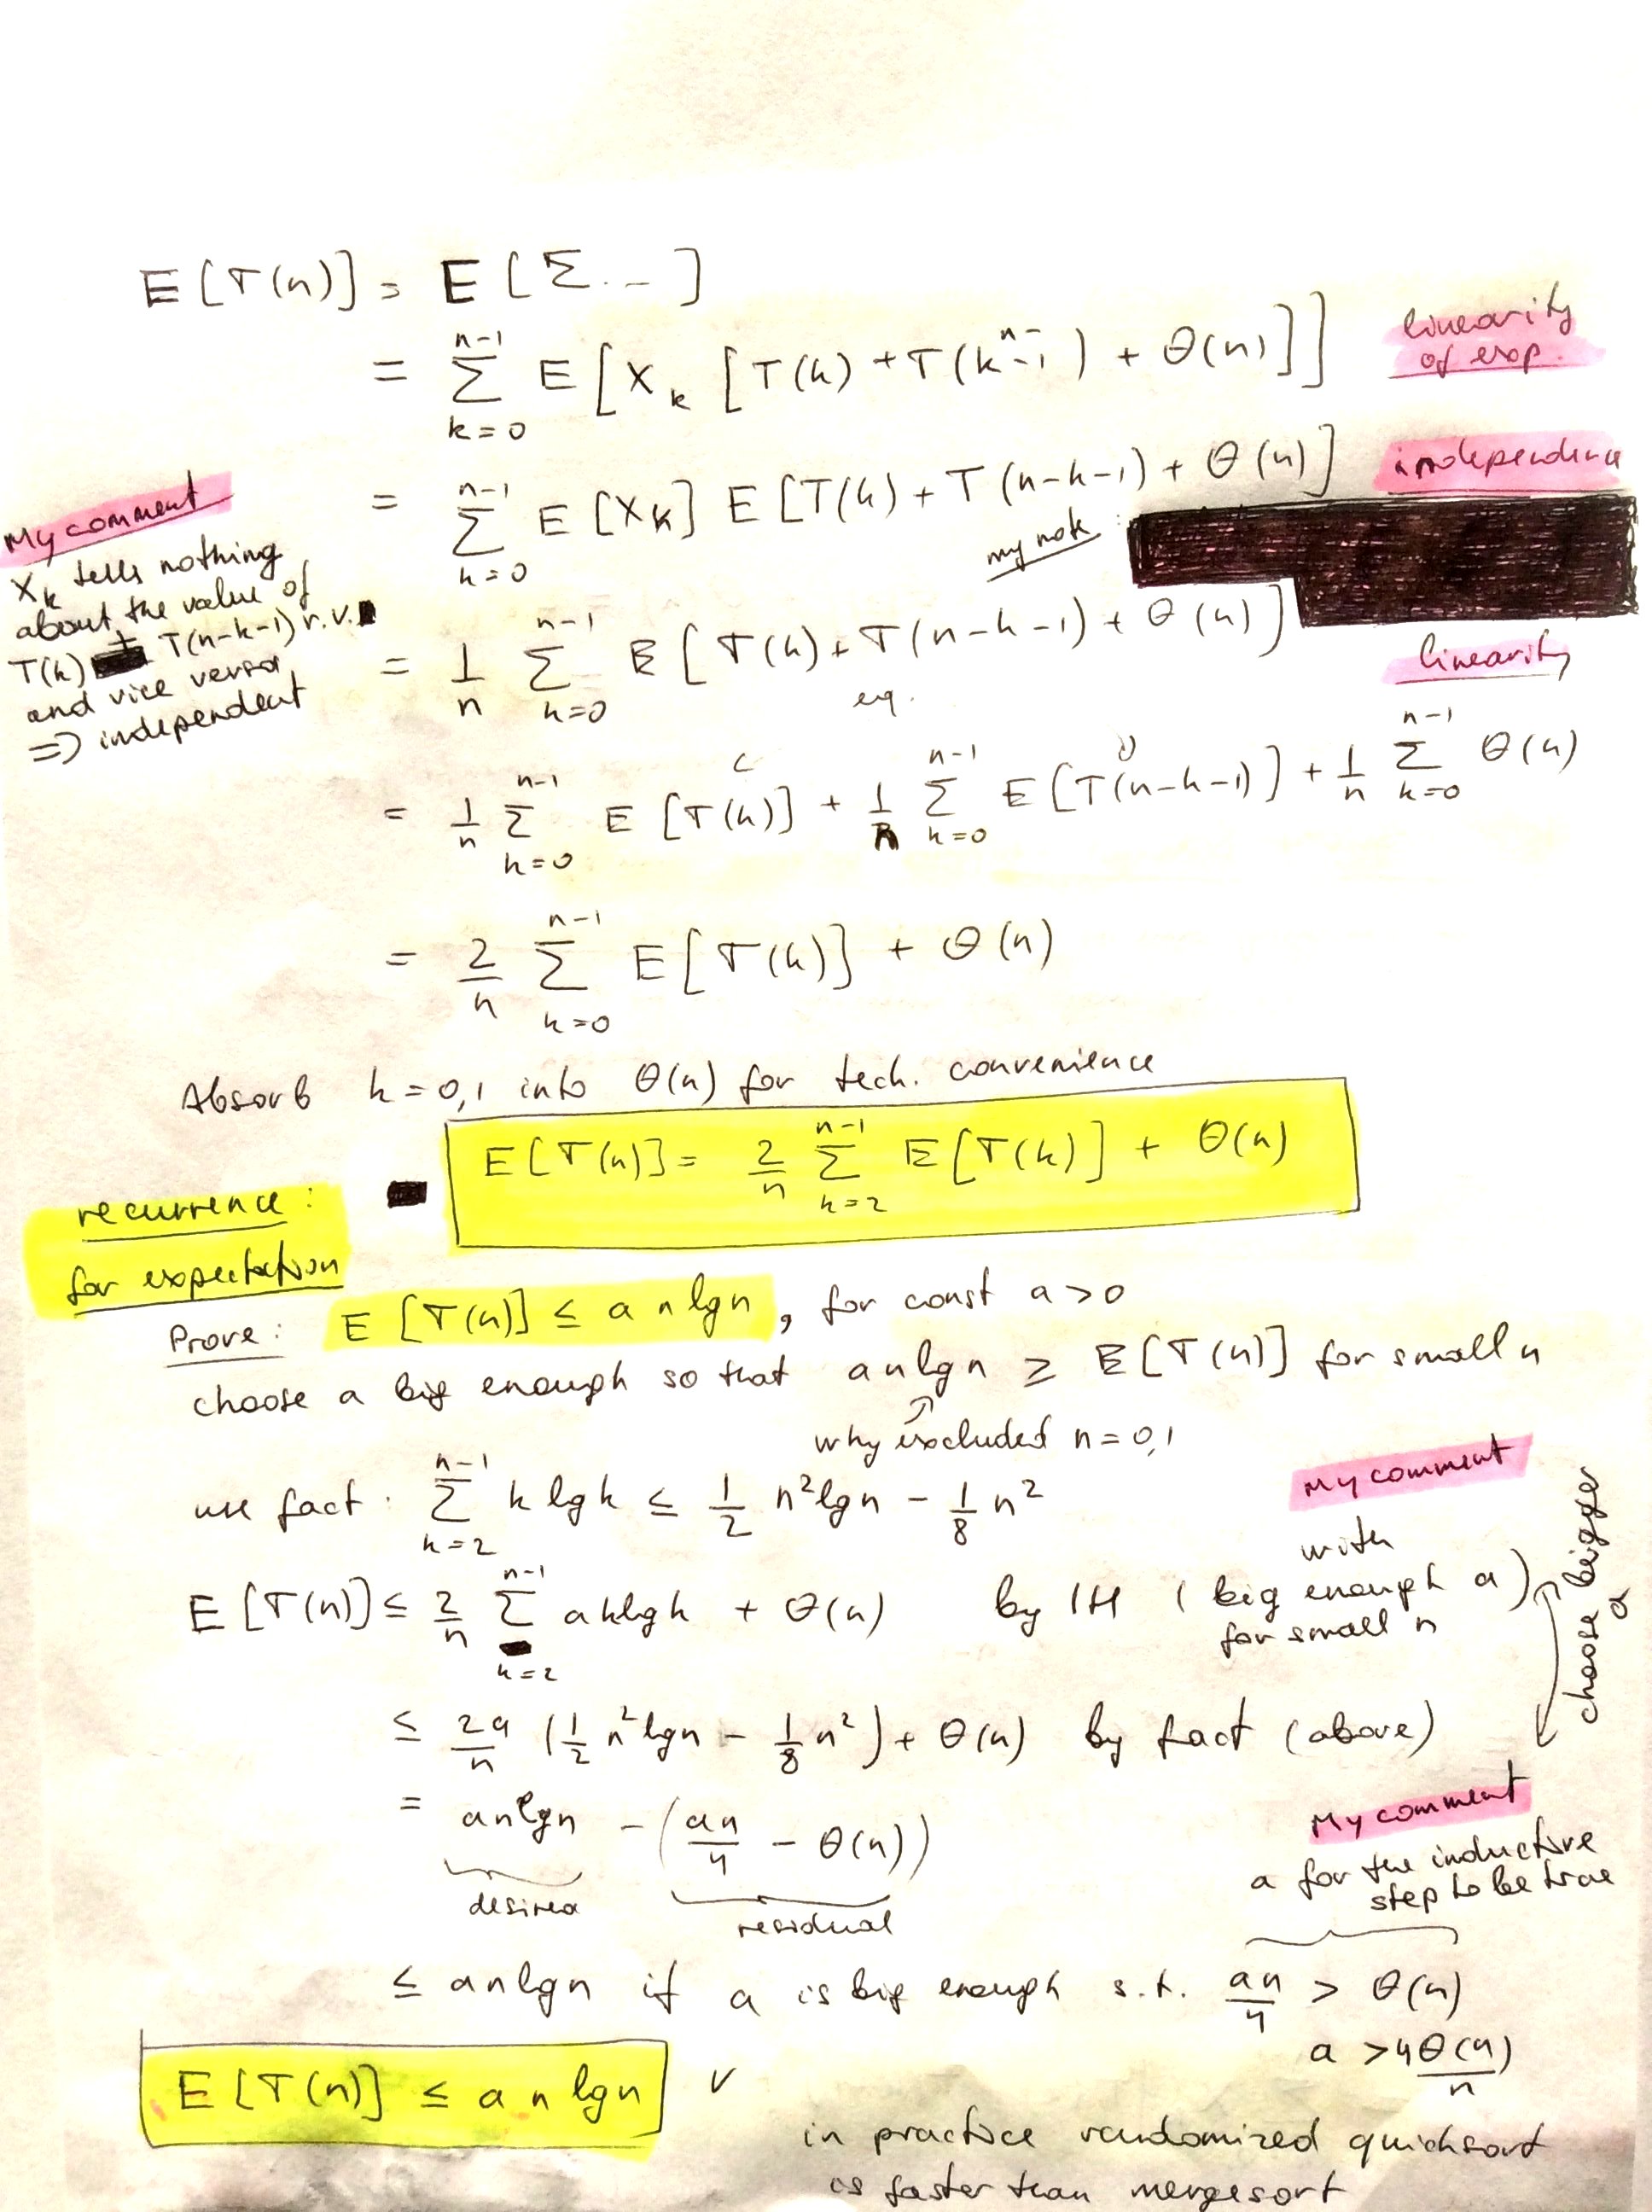 E[T(n)] = E[Σ...]
= Σ_{k=0}^{n-1} E[X_k [T(k) + T(k n--1) + Θ(n)]] linearity of exp.
= Σ_{k=0}^{n-1} E[X_k] E[T(k) + T(n-k-1) + Θ(n)] independence
my note :
My comment
X_k tells nothing
about the value of
T(k) + T(n-k-1) r.v.
and vice versa
=> independent
= 1/n Σ_{k=0}^{n-1} E[T(k) + T(n-k-1) + Θ(n)] linearity
eq.
= 1/n Σ_{k=0}^{n-1} E[T(k)] + 1/n Σ_{k=0}^{n-1} E[T(n-k-1)] + 1/n Σ_{k=0}^{n-1} Θ(n)
= 2/n Σ_{k=0}^{n-1} E[T(k)] + Θ(n)
Absorb k=0,1 into Θ(n) for tech. convenience
recurrence :
for expectation
E[T(n)] = 2/n Σ_{k=2}^{n-1} E[T(k)] + Θ(n)
Prove: E[T(n)] ≤ a n lgn, for const a>0
choose a big enough so that a n lg n ≥ E[T(n)] for small n
why excluded n=0,1
use fact: Σ_{k=2}^{n-1} k lg k ≤ 1/2 n² lgn - 1/8 n²
My comment
E[T(n)] ≤ 2/n Σ_{k=2}^{n-1} a k lg k + Θ(n) by IH (with big enough a) for small n
choose bigger a
≤ 2a/n (1/2 n² lgn - 1/8 n²) + Θ(n) by fact (above)
= a n lgn - (an/4 - Θ(n))
desired residual
My comment
a for the inductive
step to be true
≤ a n lgn if a is big enough s.t. an/4 > Θ(n)
a > 4Θ(n)/n
E[T(n)] ≤ a n lgn ✓
in practice randomized quicksort
is faster than mergesort